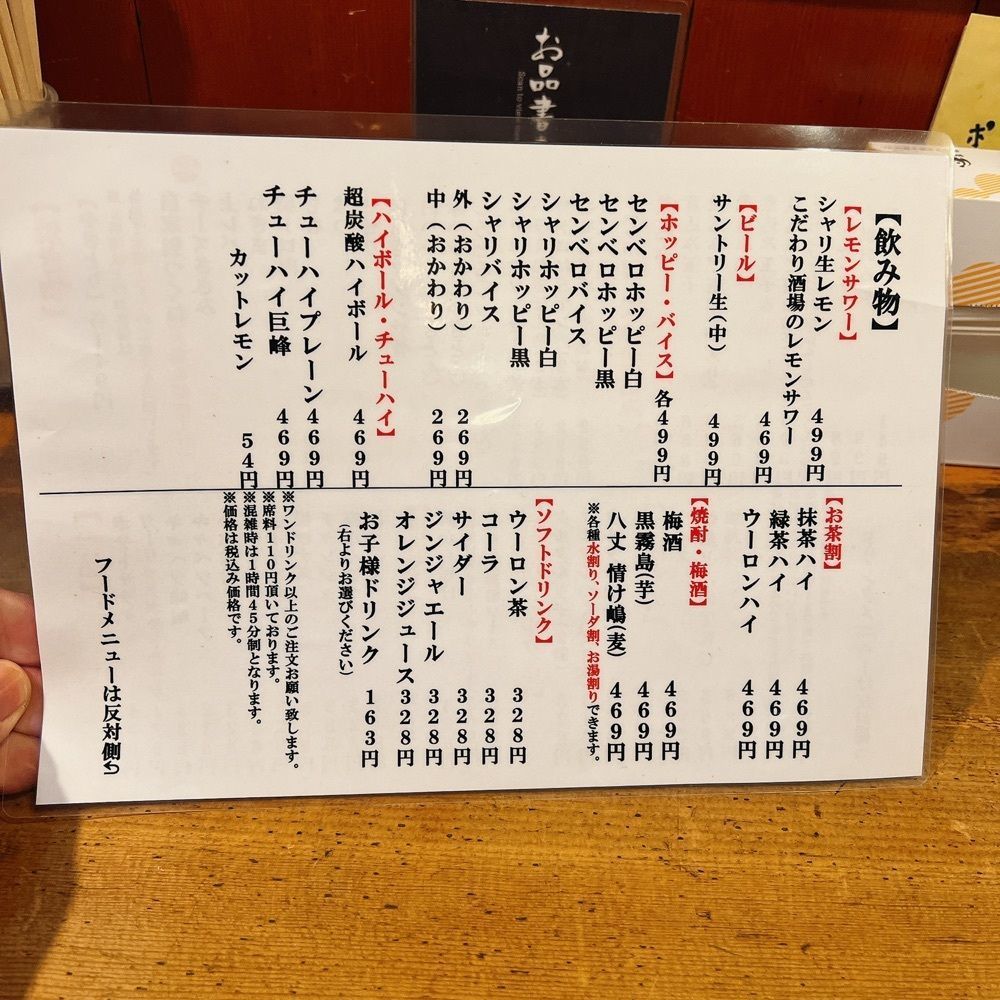 お品書
【飲み物】
【レモンサワー】
シャリ生レモン 499円
こだわり酒場のレモンサワー 469円
【ビール】
サントリー生(中) 499円
【ホッピー・バイス】各499円
センベロホッピー白
センベロホッピー黒
センベロバイス
シャリホッピー白
シャリホッピー黒
シャリバイス
外(おかわり) 269円
中(おかわり) 269円
【ハイボール・チューハイ】
超炭酸ハイボール 469円
チューハイプレーン 469円
チューハイ巨峰 469円
カットレモン 54円
【お茶割】
抹茶ハイ 469円
緑茶ハイ 469円
ウーロンハイ 469円
【焼酎・梅酒】
梅酒 469円
黒霧島(芋) 469円
八丈 情け嶋(麦) 469円
※各種水割り、ソーダ割、お湯割りできます。
【ソフトドリンク】
ウーロン茶 328円
コーラ 328円
サイダー 328円
ジンジャエール 328円
オレンジジュース 328円
お子様ドリンク 163円
(右よりお選びください)
※ワンドリンク以上のご注文お願い致します。
※席料110円頂いております。
※混雑時は1時間45分制となります。
※価格は税込み価格です。
フードメニューは反対側⮌
ポ